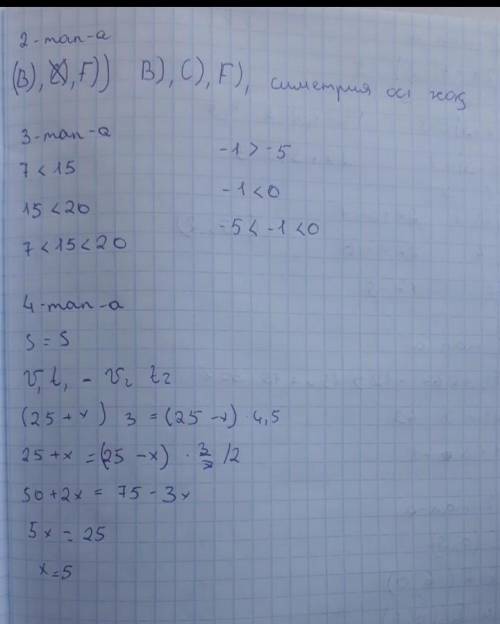 2-тап-а
(B), C), F)) B), C), F), симетрия осі жоқ
3-тап-а
7 < 15
15 < 20
7 < 15 < 20
-1 > -5
-1 < 0
-5 < -1 < 0
4-тап-а
S = S
V₁ t₁ - V₂ t₂
(25 + x) 3 = (25 - x) · 4,5
25 + x = (25 - x) · 3/2 /2
50 + 2x = 75 - 3x
5x = 25
x = 5